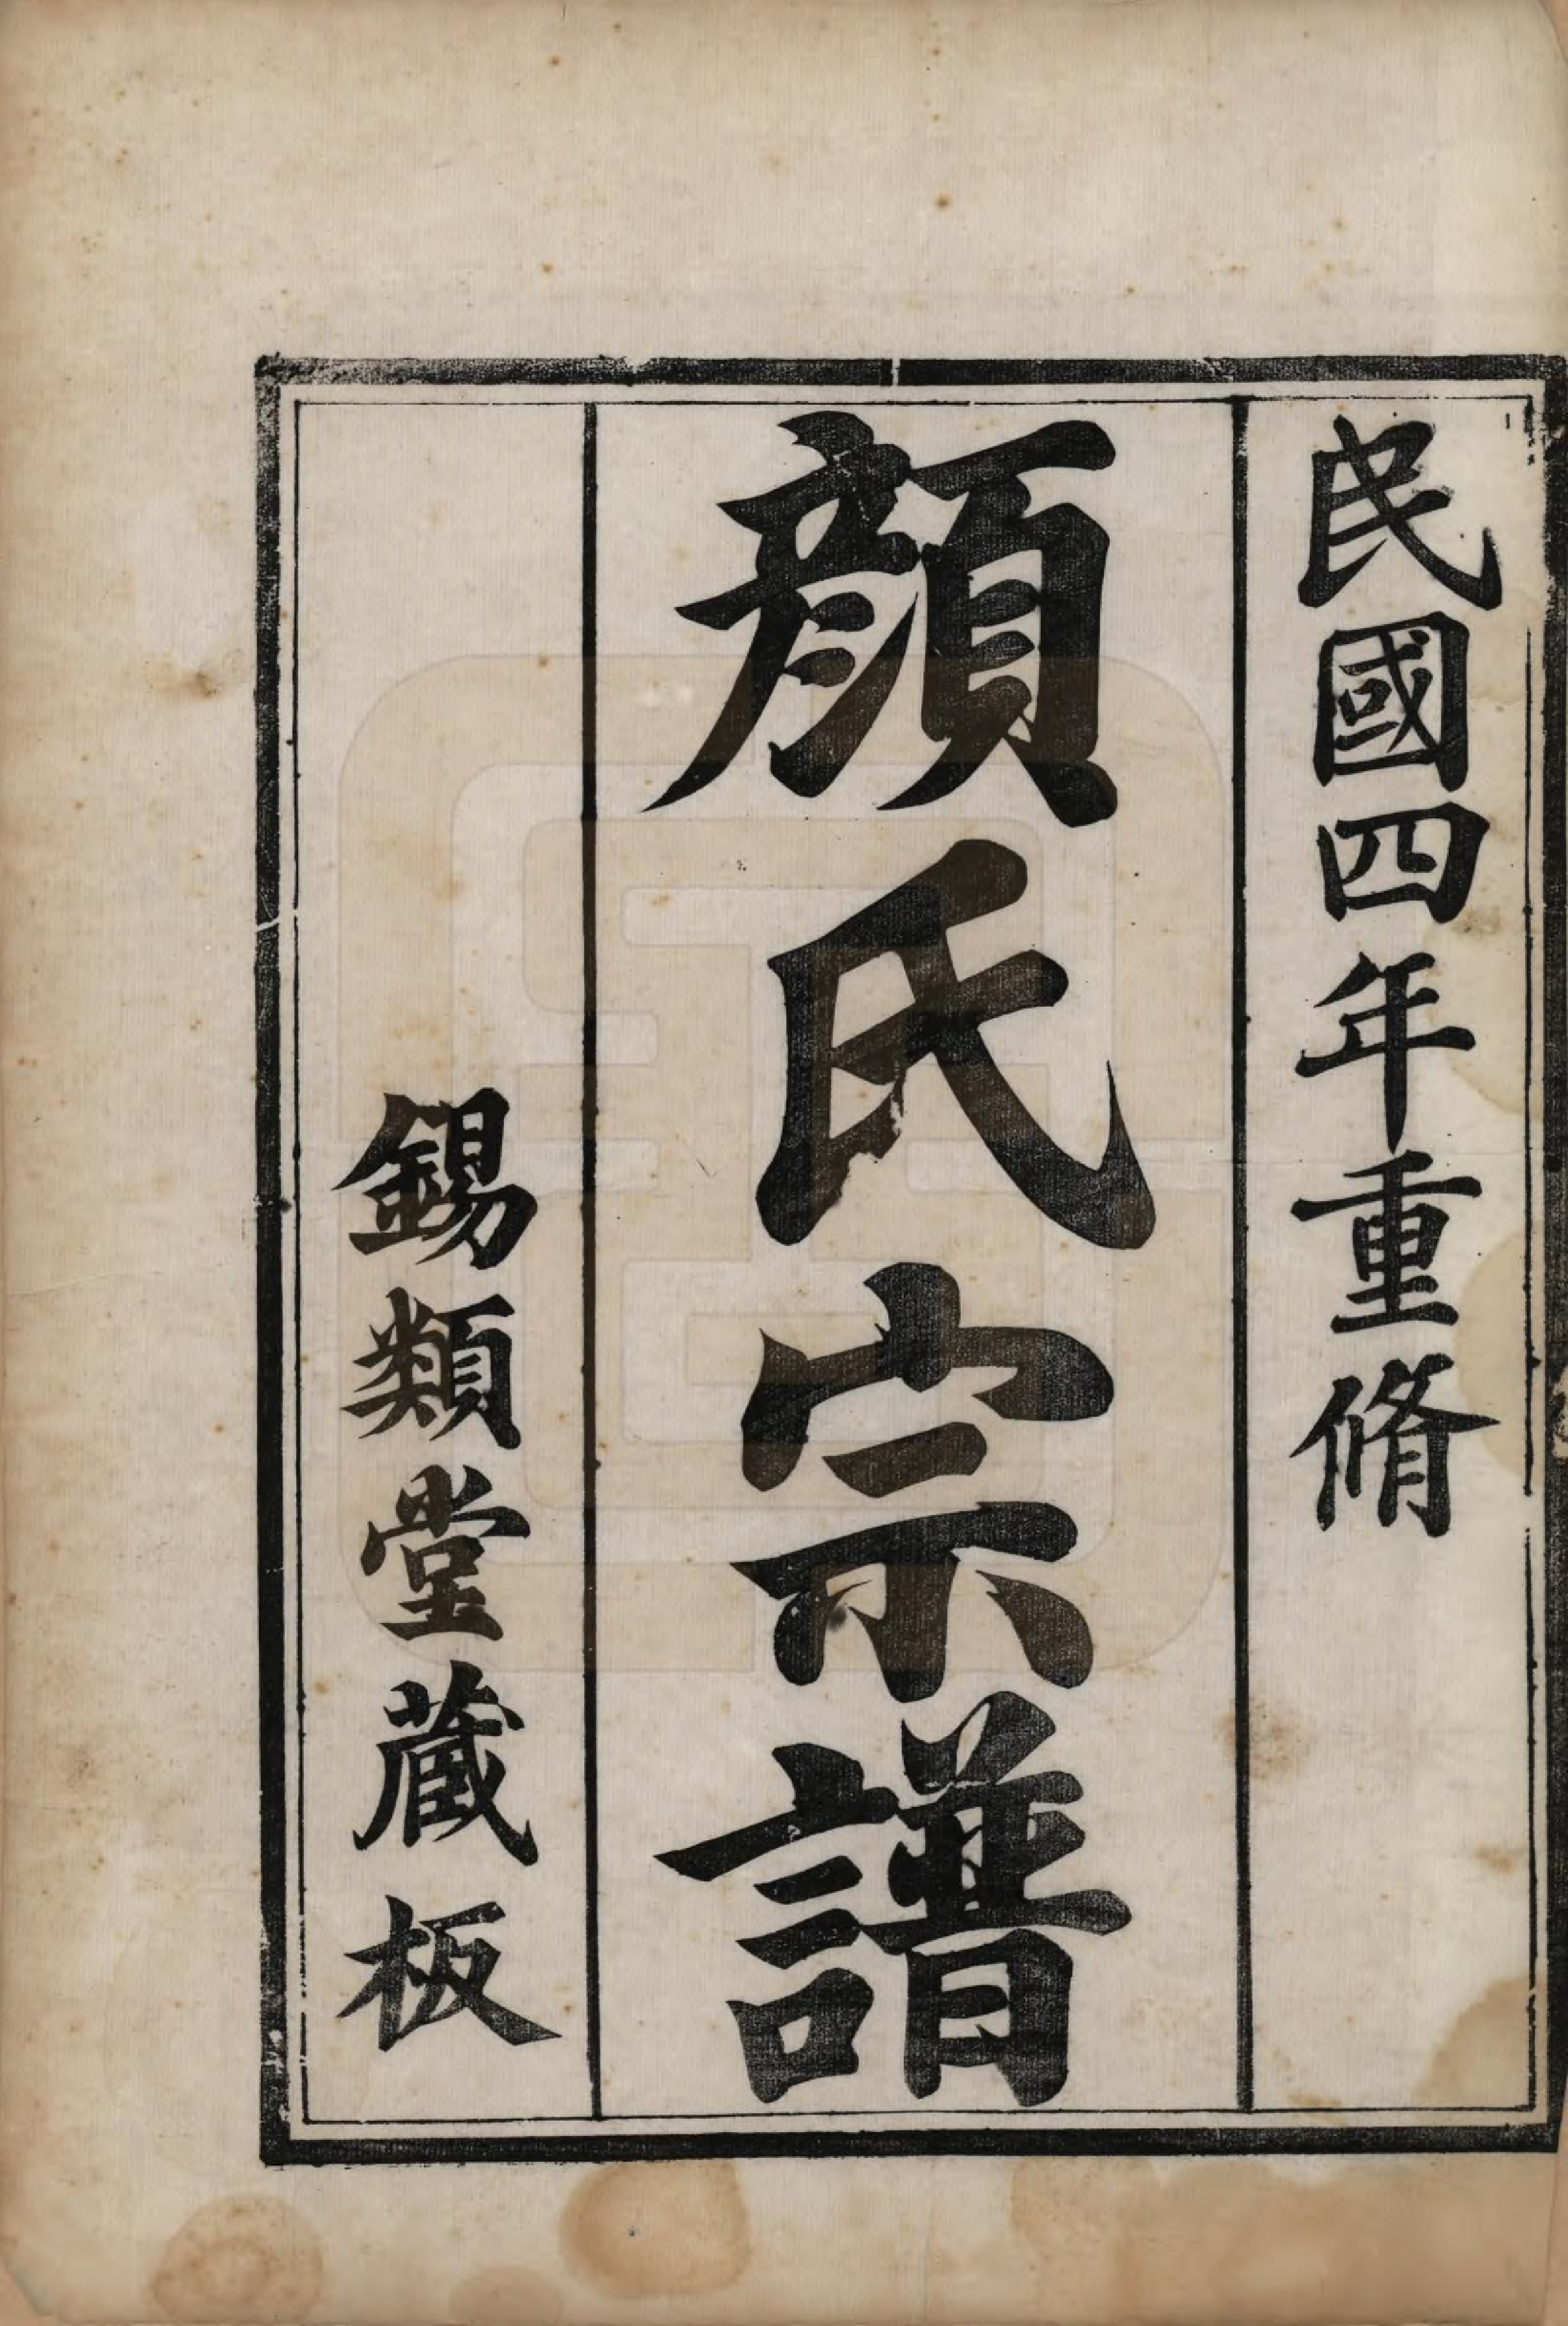 民國四年重脩
顔氏宗譜
錫類堂藏板